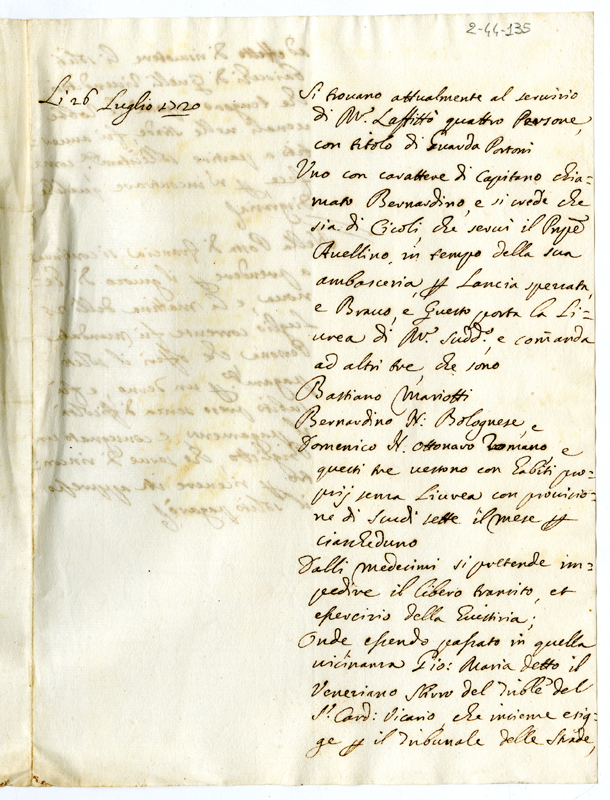 2-44-135
Li 26 Luglio 1720
Si trovano attualmente al servizio
di Mr. Laffittò quattro Persone,
con titolo di Guarda Portoni
Uno con carattere di Capitano chia=
mato Bernardino, e si crede che
sia di Cicoli, che servì il Pnpe
Avellino, in tempo della sua
ambasceria, p Lancia spezzata,
e Bravo, e Questo porta la Li=
vrea di Mr. Sudd.o, e comanda
ad altri tre, che sono
Bastiano Mariotti
Bernardino N: Bolognese, e
Domenico N. Ottonaro Romano, e
questi tre vestono con habiti pro=
prij senza Livrea con provisio=
ne di Scudi sette il mese p
ciascheduno
Dalli medesimi si pretende im=
pedire il libero transito, et
esercizio della Giustizia;
Onde essendo passato in quella
vicinanza Gio: Maria detto il
Veneziano Sbirro del Trible del
Sr. Card: Vicario, che insieme esig=
ge p il Tribunale delle Strade,